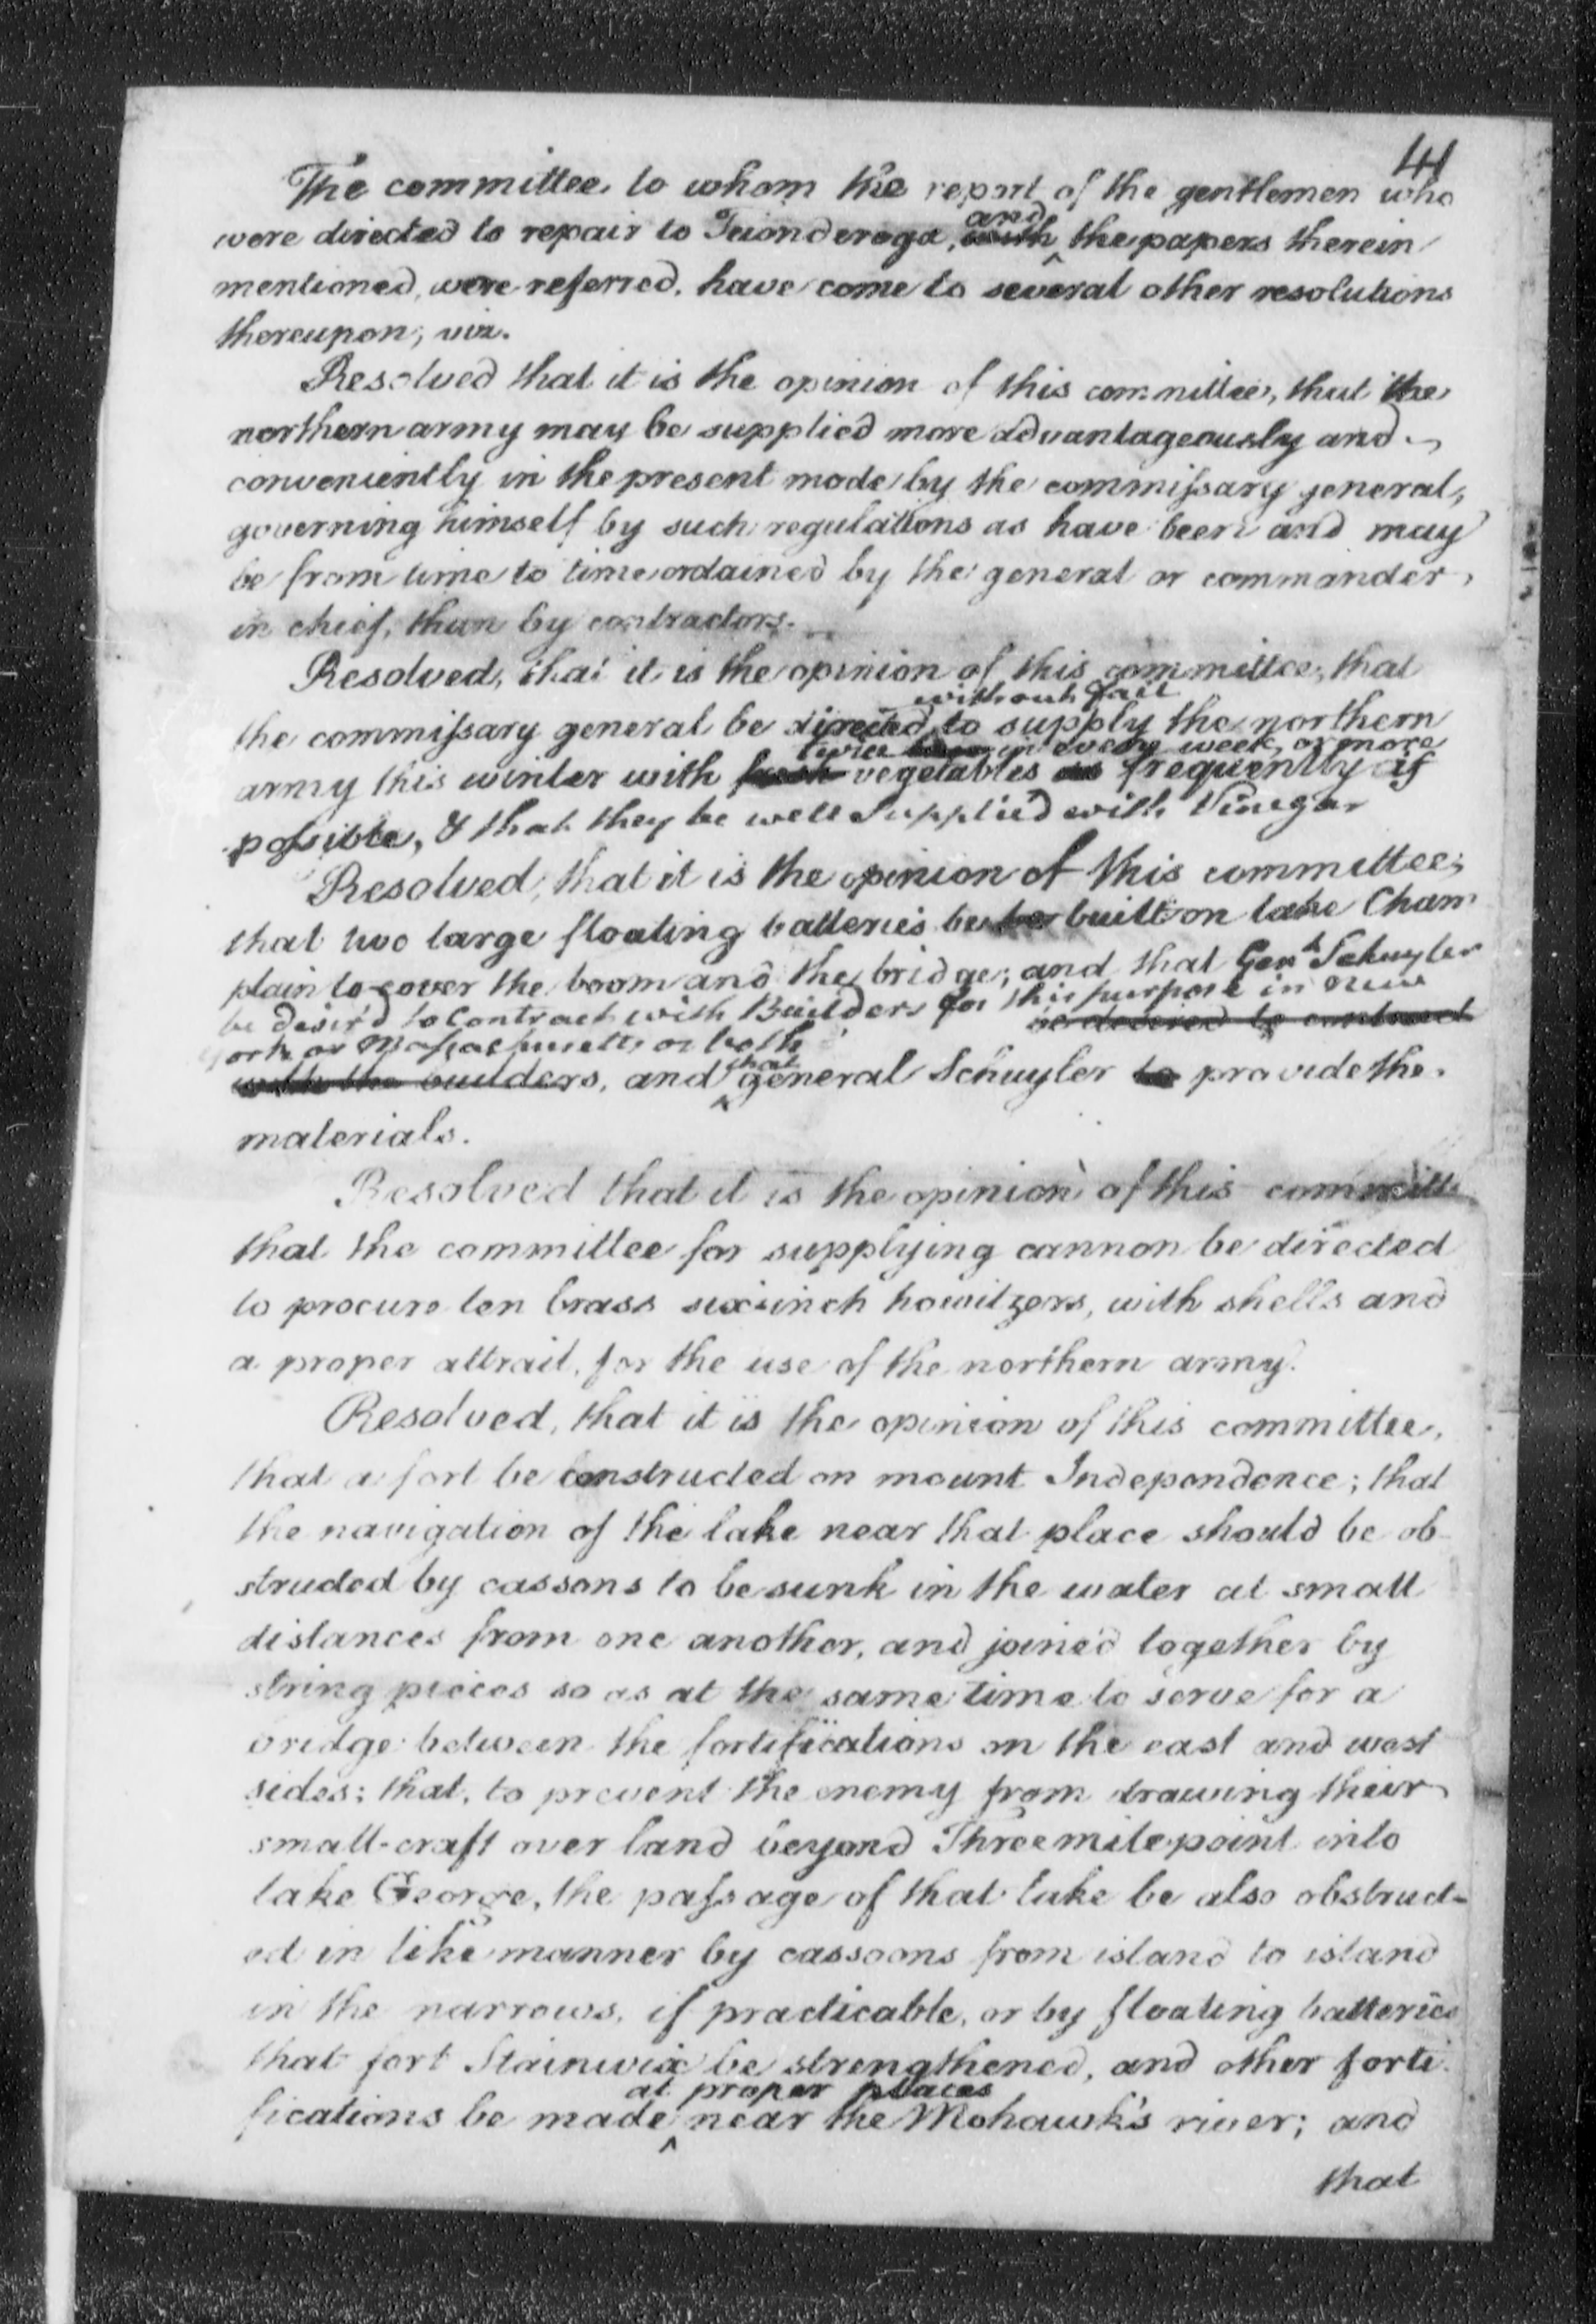 41
The committee, to whom the report of the gentlemen who
and
were directed to repair to Teionderoga, with the papers therein
mentioned, were referred, have come to several other resolutions
thereupon; viz.
Resolved that it is the opinion of this committee, that the
northern army may be supplied more advantageously and
conveniently in the present mode by the commissary general,
governing himself by such regulations as have been and may
be from time to time ordained by the general or commander
in chief, than by contractors.
Resolved, that it is the opinion of this committee, that
without fail
the commissary general be directed to supply the northern
twice in every week, or more
army this winter with fresh vegetables as frequently if
possible, & that they be well Supplied with Vinegar
Resolved, that it is the opinion of this committee,
that two large floating batteries be built on lake Cham
plain to cover the boom and the bridge; and that Genl Schuyler
be desir'd to Contract with Builders for this purpose in New
be desired to contract
york or Massachusetts or both
that
with the builders, and general Schuyler to provide the
materials.
Resolved that it is the opinion of this committe
that the committee for supplying cannon be directed
to procure ten brass six inch howitzers, with shells and
a proper attrail, for the use of the northern army.
Resolved, that it is the opinion of this committee,
that a fort be constructed on mount Independence; that
the navigation of the lake near that place should be ob
structed by cassons to be sunk in the water at small
distances from one another, and joined together by
string pieces so as at the same time to serve for a
bridge between the fortifications on the east and west
sides; that, to prevent the enemy from drawing their
small-craft over land beyond Three mile point into
lake George, the passage of that lake be also obstruct-
ed in like manner by cassoons from island to island
in the narrows, if practicable, or by floating batteries
that fort Stainwix be strengthened, and other forti
at proper places
fications be made near the Mohawk's river; and
that